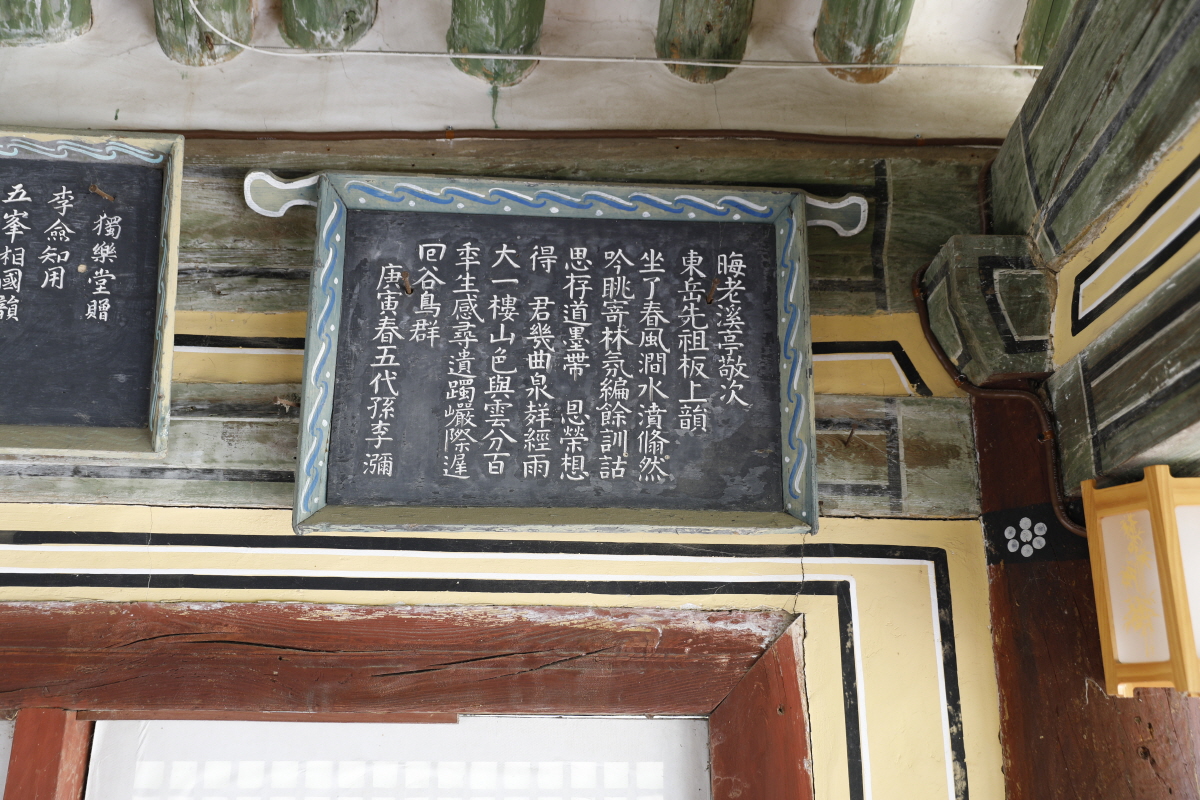 晦老溪亭敬次
東岳先祖板上韻
坐了春風澗水濆翛然
吟眺寄林氛編餘訓詁
思存道墨帶 恩榮想
得 君幾曲泉聲經雨
大一樓山色與雲分百
秊生感尋遺躅巖際遲
囘谷鳥群
庚寅春五代孫李瀰
獨樂堂贈
李僉知用
五峯相國韻